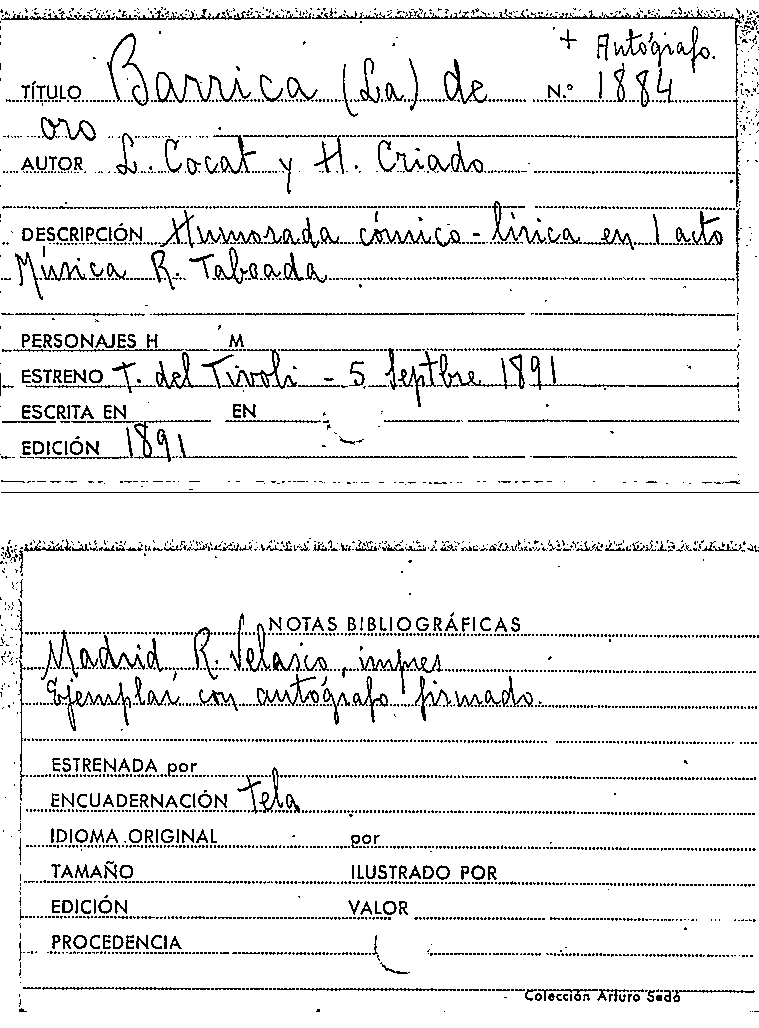 + Autógrafo.
TÍTULO Barrica (La) de N.º 1884
oro
AUTOR L. Cocat y H. Criado
DESCRIPCIÓN Humorada cómico-lírica en 1 acto
Música R. Taboada
PERSONAJES H M
ESTRENO T. del Tívoli - 5 Septbre 1891
ESCRITA EN EN
EDICIÓN 1891
NOTAS BIBLIOGRÁFICAS
Madrid, R. Velasco, impres
Ejemplar con autógrafo firmado.
ESTRENADA por
ENCUADERNACIÓN Tela
IDIOMA ORIGINAL por
TAMAÑO ILUSTRADO POR
EDICIÓN VALOR
PROCEDENCIA
Colección Arturo Sedó